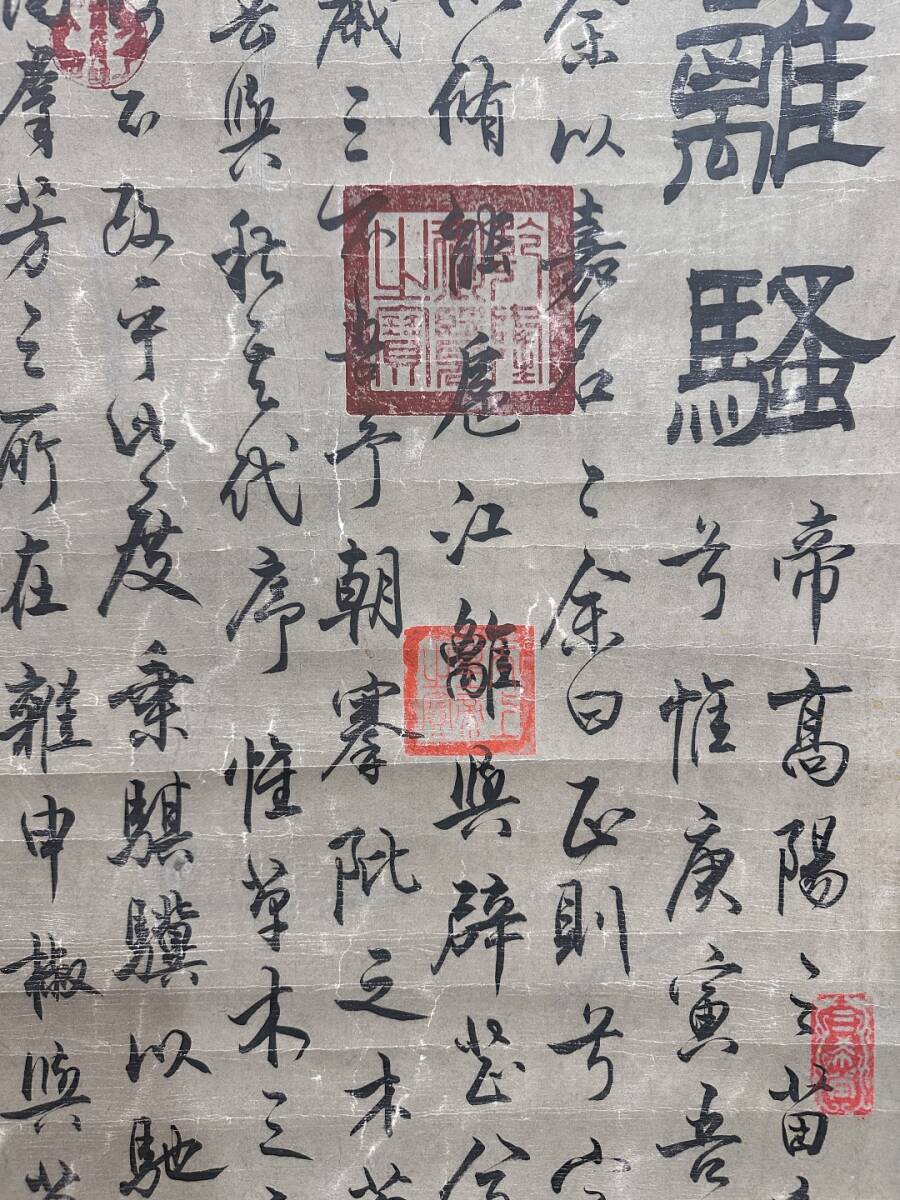 離騷
帝高陽之苗
兮惟庚寅吾
余以嘉名〻余曰正則兮字
脩能扈江離與辟芷兮
歲之不吾予朝搴阰之木
春與秋其代序惟草木之
不改乎此度乘騏驥以馳
羣芳之所在雜申椒與